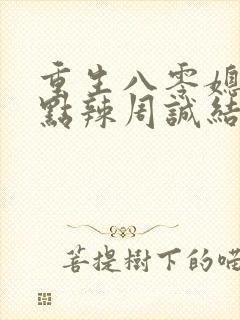 重生八零媳
點辣周誠結
菩提樹下的喵